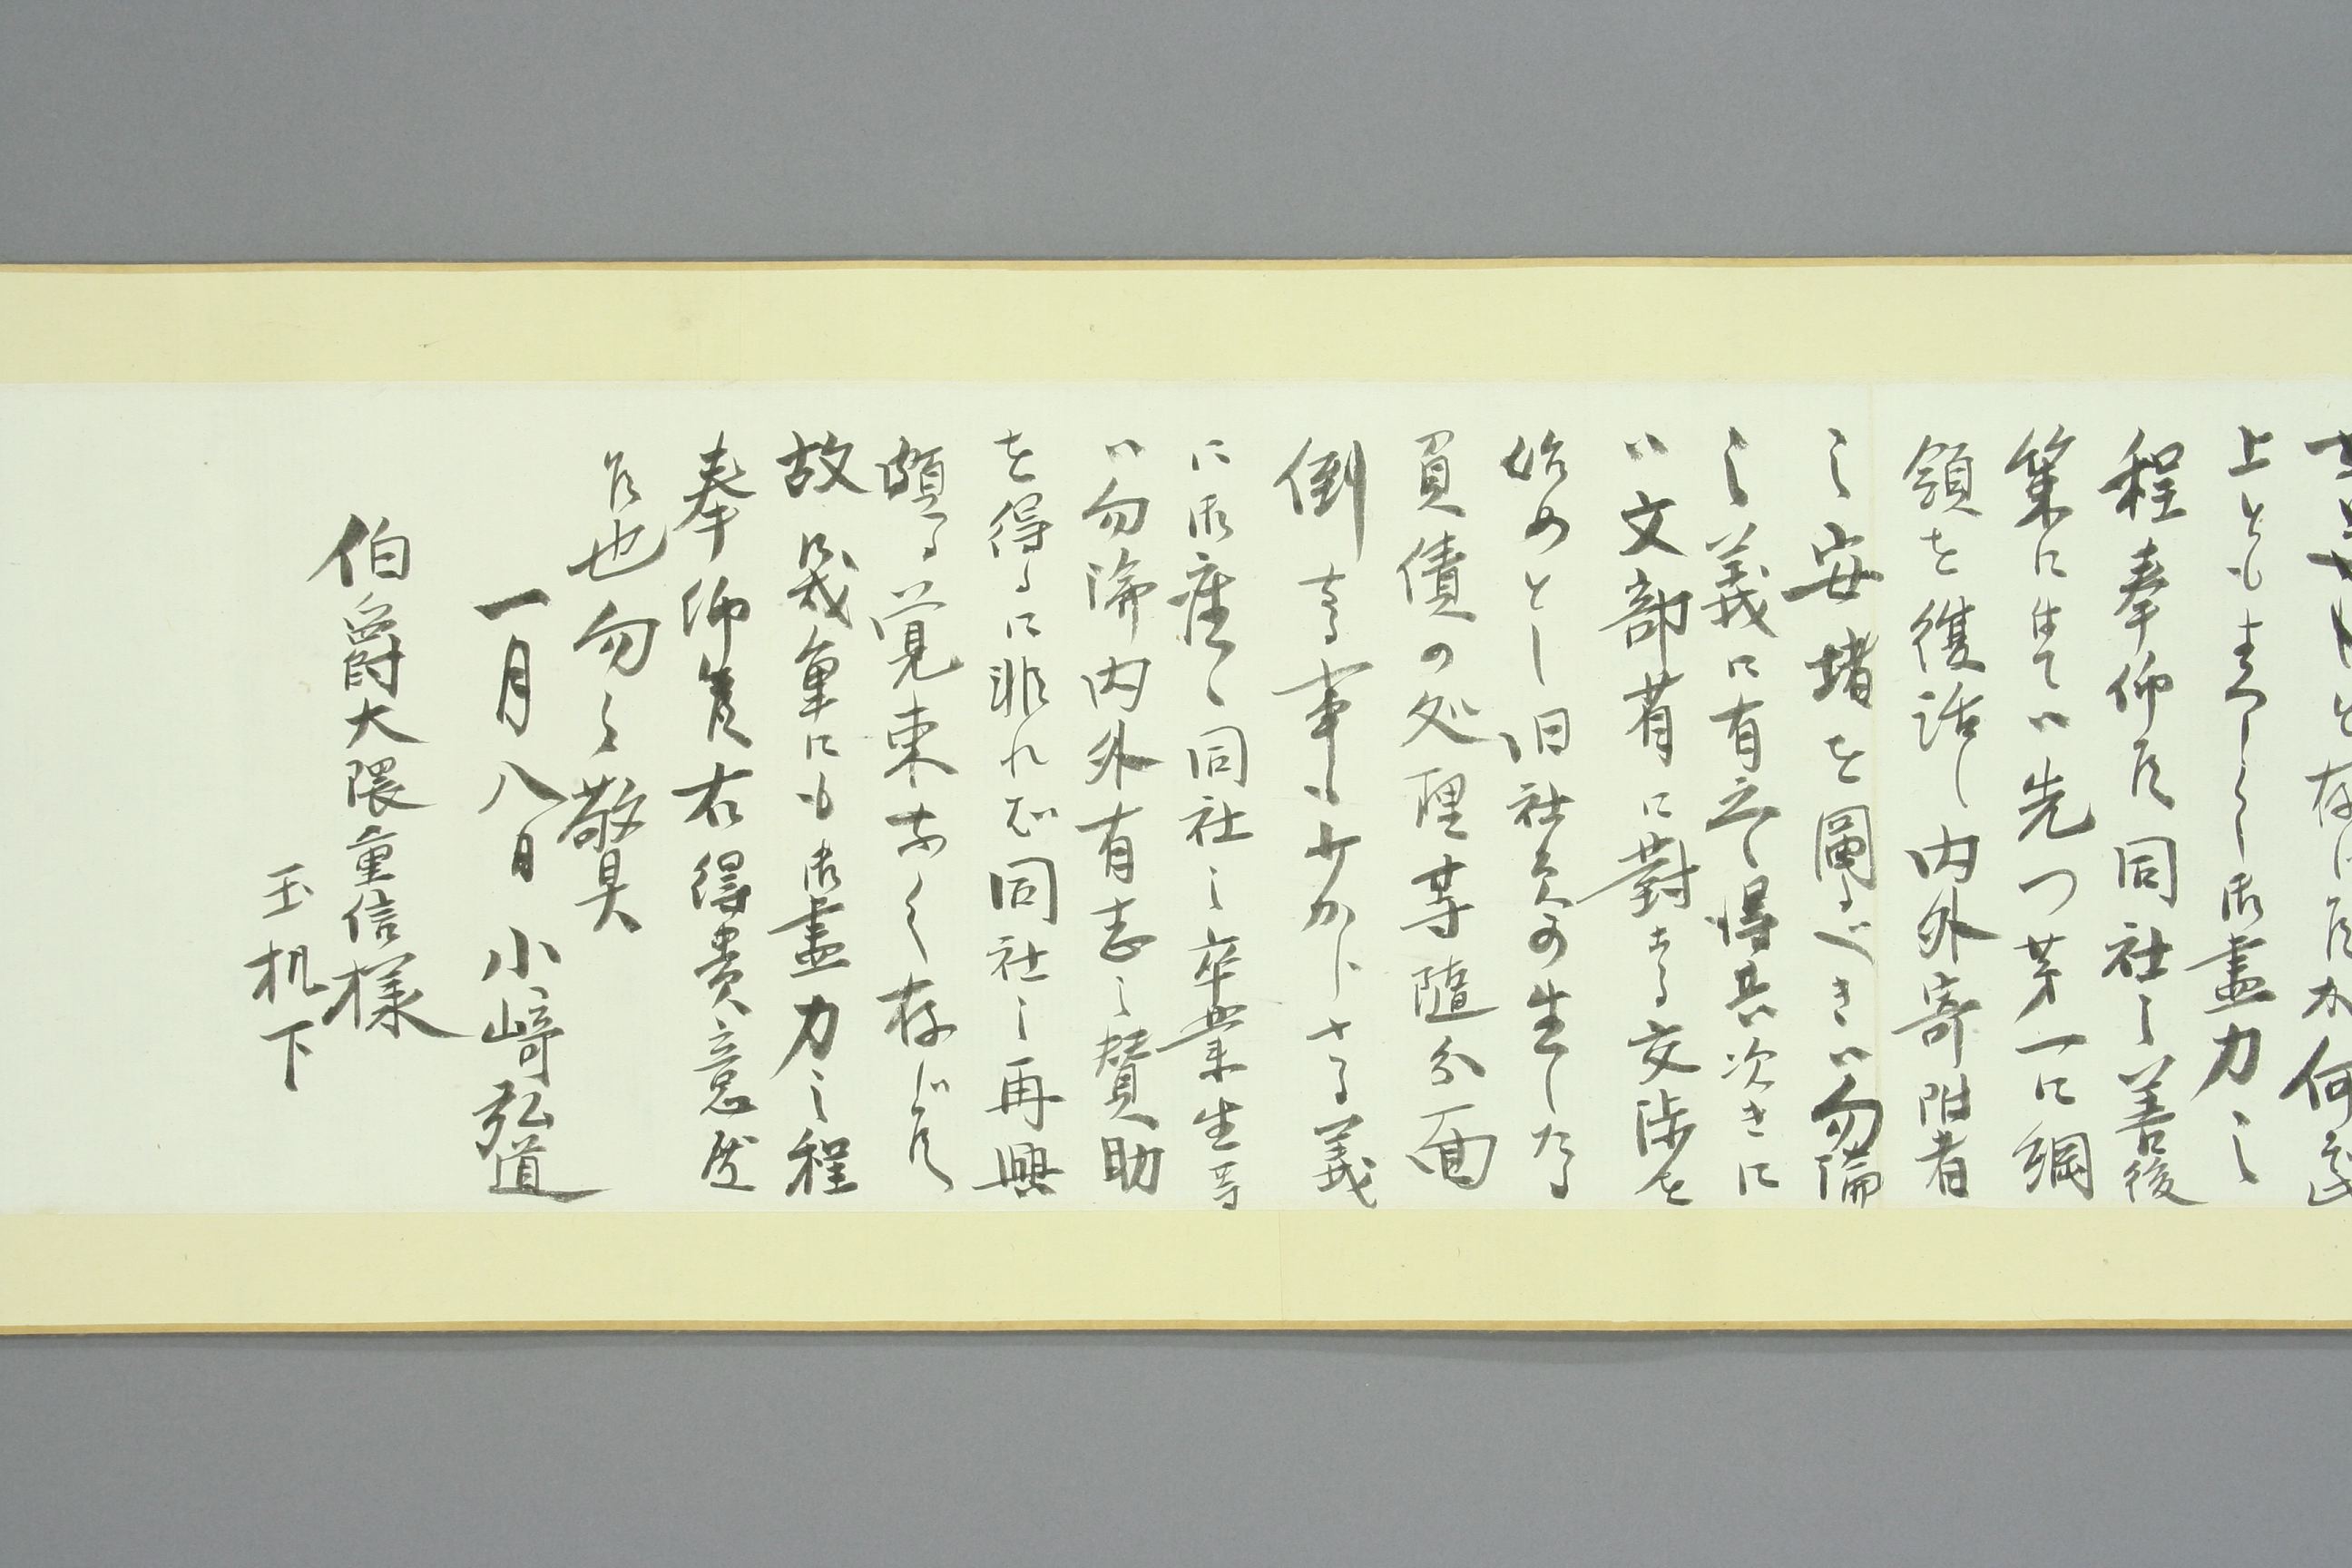 上とも末なく御盡力之
程奉仰候同社之善後
策に付てハ先つ第一に綱
領を復活し内外寄附者
之安堵を圖るべきハ勿論
之義に有之得共次きに
ハ文部省に對する交渉を
始めとし旧社員の生したる
負債の処理等隨分面
倒なる事も少からさる義
に御座候同社之卒業生等
ハ勿論内外有志之賛助
を得るに非れば同社之再興
頗る覚束なく存じ候
故幾重にも御盡力之程
奉仰候右得貴意度
候也勿々敬具
一月八日 小﨑弘道
伯爵大隈重信様
玉机下